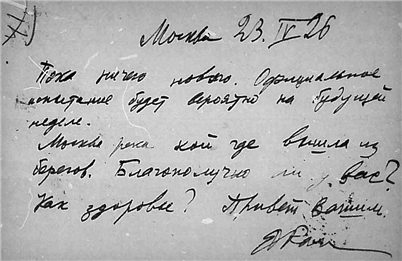 Москва 23. IV 26
Пока ничего нового. Официальное
испытание будет вероятно на будущей
неделе.
Москва река кой где вышла из
берегов. Благополучно ли у вас?
Как здоровье? Привет Вашим.